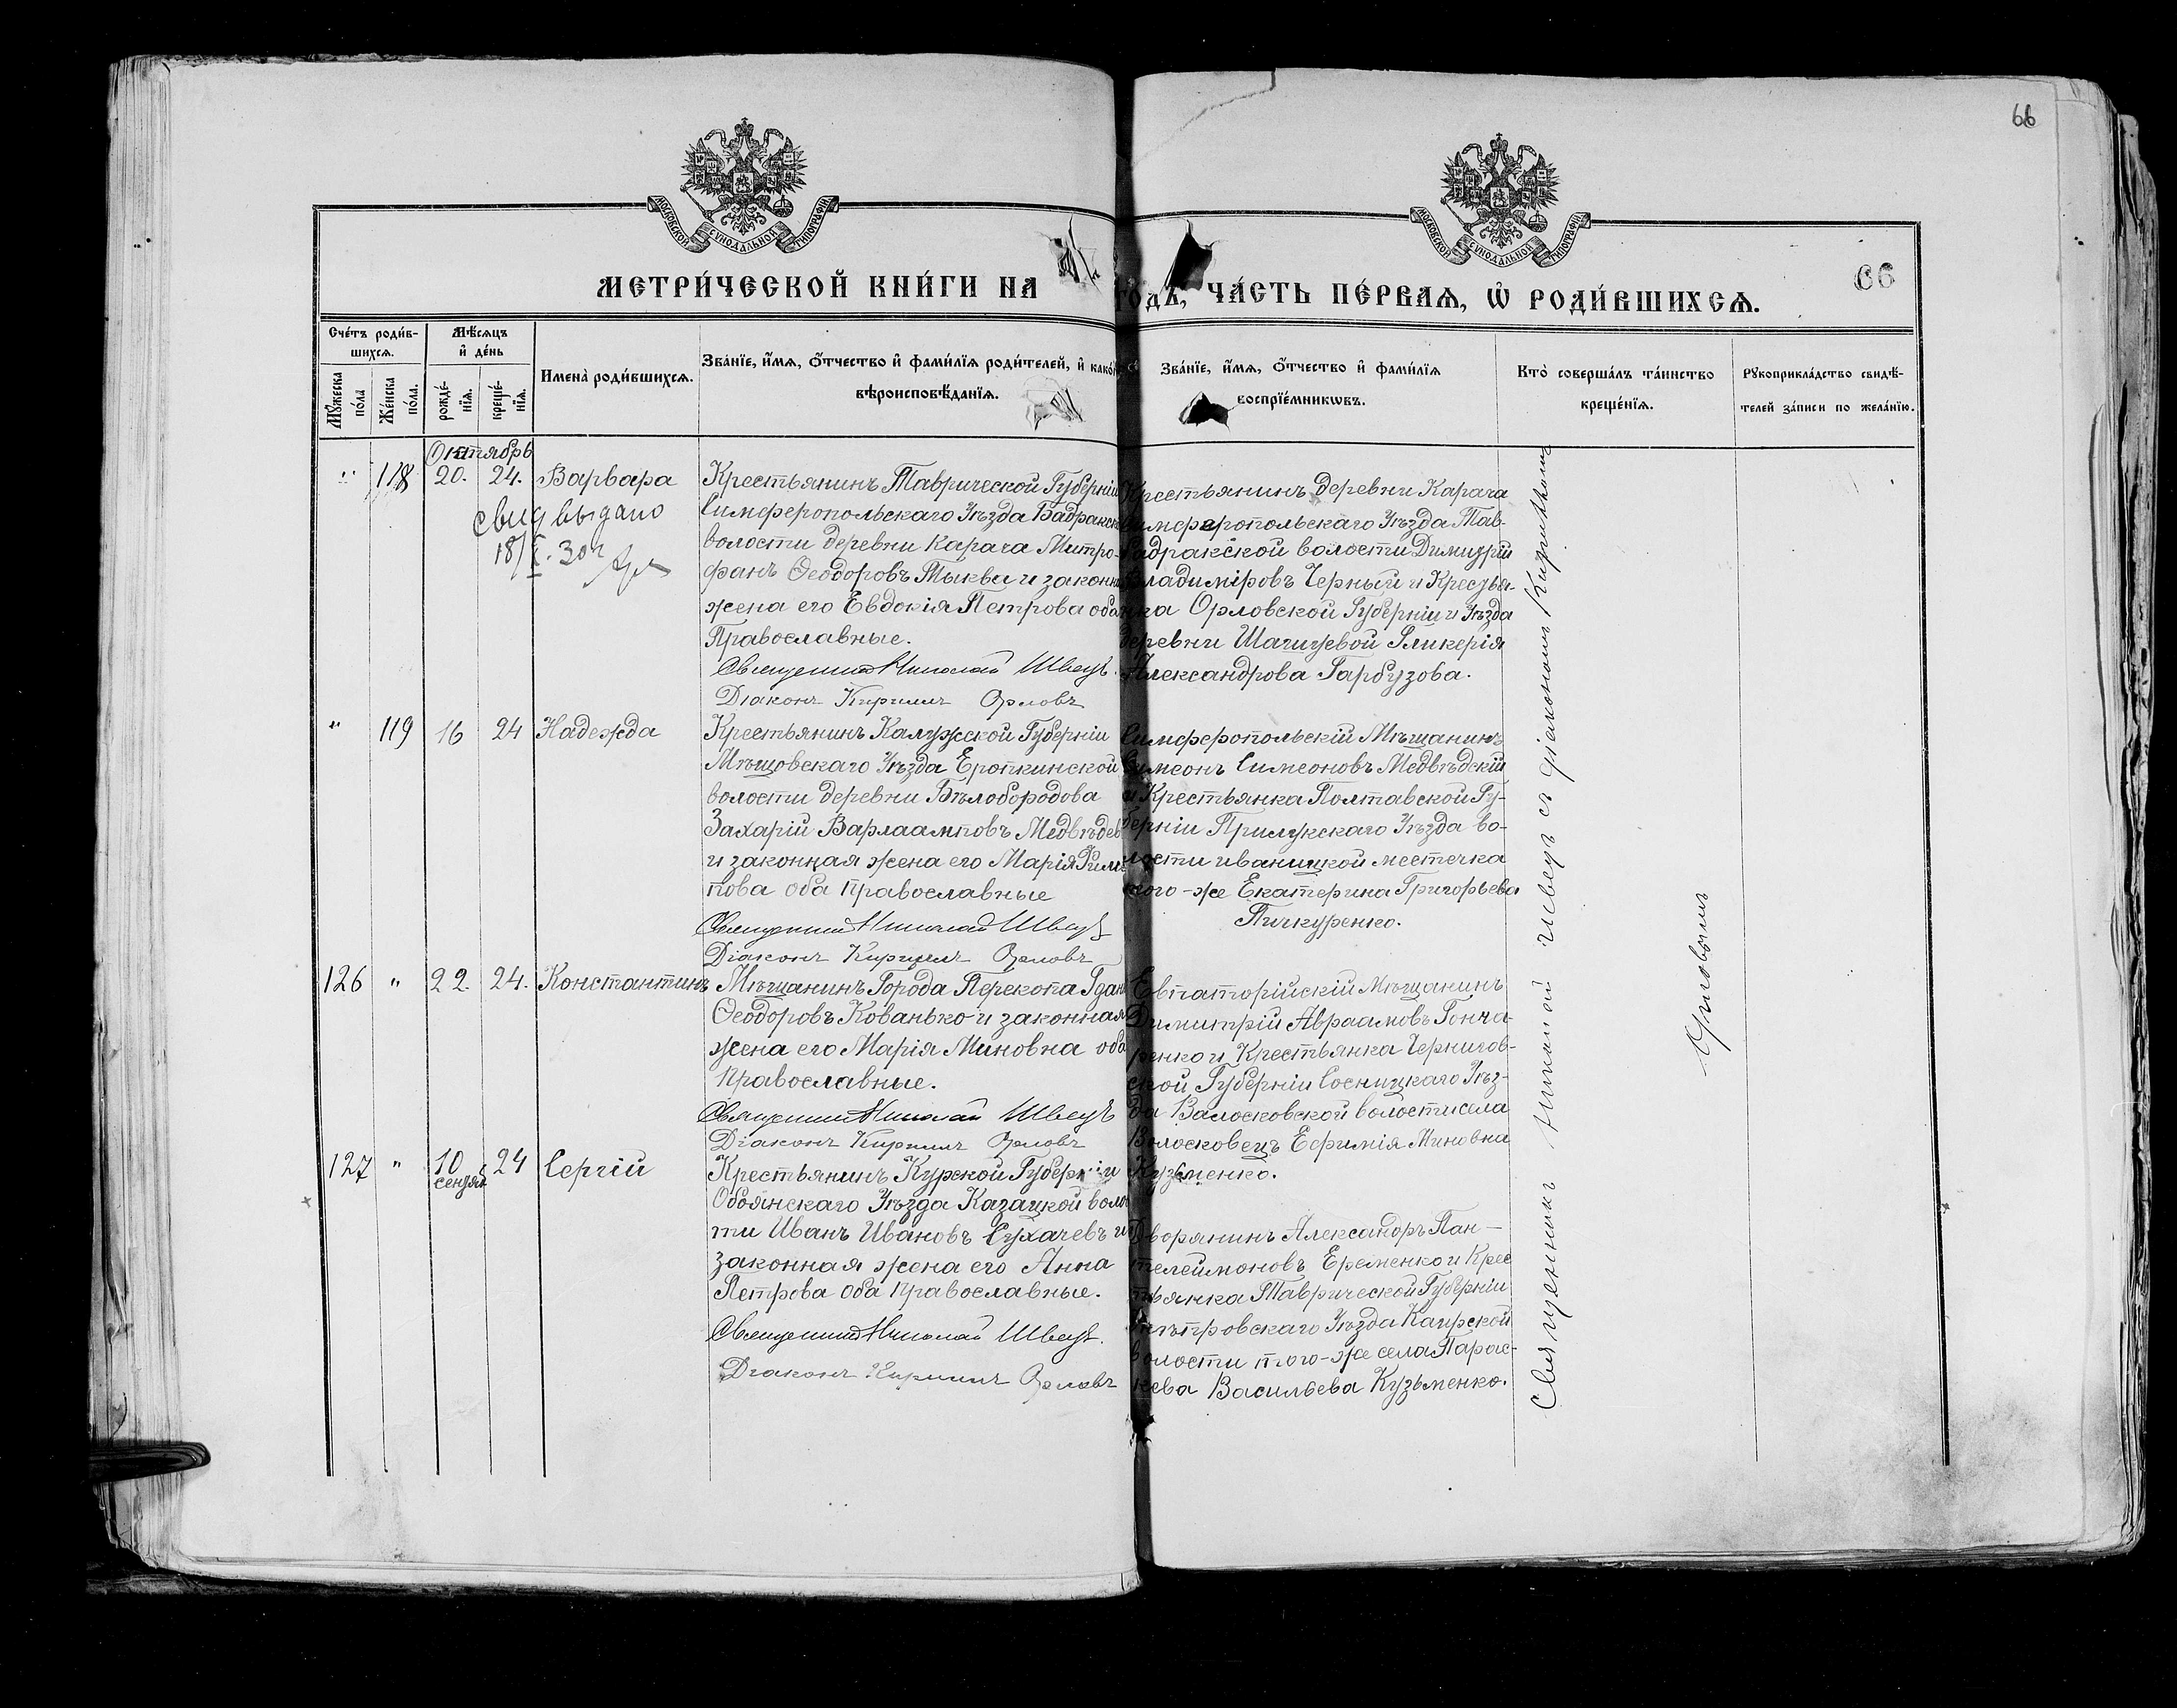 66
МОСКОВСКОЙ СѴНОДАЛЬНОЙ ТИПОГРАФІИ
МОСКОВСКОЙ СѴНОДАЛЬНОЙ ТИПОГРАФІИ
66
МЕТРИ́ЧЕСКОЙ КНИ́ГИ НА
ГОДЪ, ЧА́СТЬ ПЕ́РВАѦ, Ѡ҆ РОДИ́ВШИХСѦ.
Сче́тъ роди́в-
шихсѧ.
Мѣ́сѧцъ
и҆ де́нь
Мꙋ́жеска по́ла
Же́нска по́ла.
рожде́-нїѧ.
креще́-нїѧ.
Имена̀ роди́вшихсѧ.
Зва́нїе, и҆́мѧ, ѻ҆́тчество и҆ фами́лїѧ роди́телей, и҆ како́
вѣроисповѣ́данїѧ.
Зва́нїе, и҆́мѧ, ѻ҆́тчество и҆ фами́лїѧ
воспрїе́мникѡвъ.
Кто̀ соверша́лъ та́инство
креще́нїѧ.
Рꙋкоприкла́дство свидѣ́-
телей за́писи по жела́нїю.
Октябрь
" 118 20. 24. Варвара
свид выдано
18/X. 30г
Крестьянинъ Таврической Губерніи
Симферопольскаго Уѣзда Бадракск
волости деревни Карача Митро-
фанъ Ѳеодоровъ Тыква и законн
жена его Евдокія Петрова оба
Православные.
Священник Николай Швецъ.
Діаконъ Кириллъ Орловъ
Крестьянинъ деревни Карача
Симферопольскаго Уѣзда Тав-
Бадракской волости Димитрій
Владиміровъ Черный и Крестья-
нка Орловской Губерніи и Уѣзда
деревни Гликерія
Александрова Гарбузова.
" 119 16 24 Надежда
Крестьянинъ Калужской Губерніи
Мѣщовскаго Уѣзда Еропкинской
волости деревни Бѣлобородова
Захарій Варлаамповъ Медвѣдев
и законная жена его Марія
пова оба православные
Священник Николай Швецъ
Діаконъ Кириллъ Орловъ
Симферопольскій Мѣщанинъ
Симеонъ Симеоновъ Медвѣдскій
и Крестьянка Полтавской Гу-
берніи Прилукскаго Уѣзда во-
лости иваницкой местечка
того-же Екатерина Григорьева
Пичкуренко.
126 " 22. 24. Константинъ
Мѣщанинъ Города Перекопа
Ѳеодоровъ Кованько и законная
жена его Марія Миновна оба
Православные.
Священник Николай Швецъ
Діаконъ Кириллъ Орловъ
Евпаторійскій Мѣщанинъ
Димитрій Авраамовъ Гонча-
ренко и Крестьянка Чернигов-
ской Губерніи Сосницкаго Уѣз-
да Валосковской волости села
Волосковецъ Ефимія Миновна
Кузьменко.
127 " 10 24 Сергій
сентяб
Крестьянинъ Курской Губерніи
Обоянскаго Уѣзда Казацкой волос
ти Иванъ Ивановъ Сухачевъ и
законная жена его Анна
Петрова оба православные.
Священник Николай Швецъ.
Діаконъ Кириллъ Орловъ
Дворянинъ Александръ Пан-
телеймоновъ Еременко и Крес
тьянка Таврической Губерніи
Днѣпровскаго Уѣзда Каирской
волости того-же села Парас-
кева Васильева Кузьменко.
Священникъ Николай Швецъ съ діакономъ Кирилломъ
Орловымъ